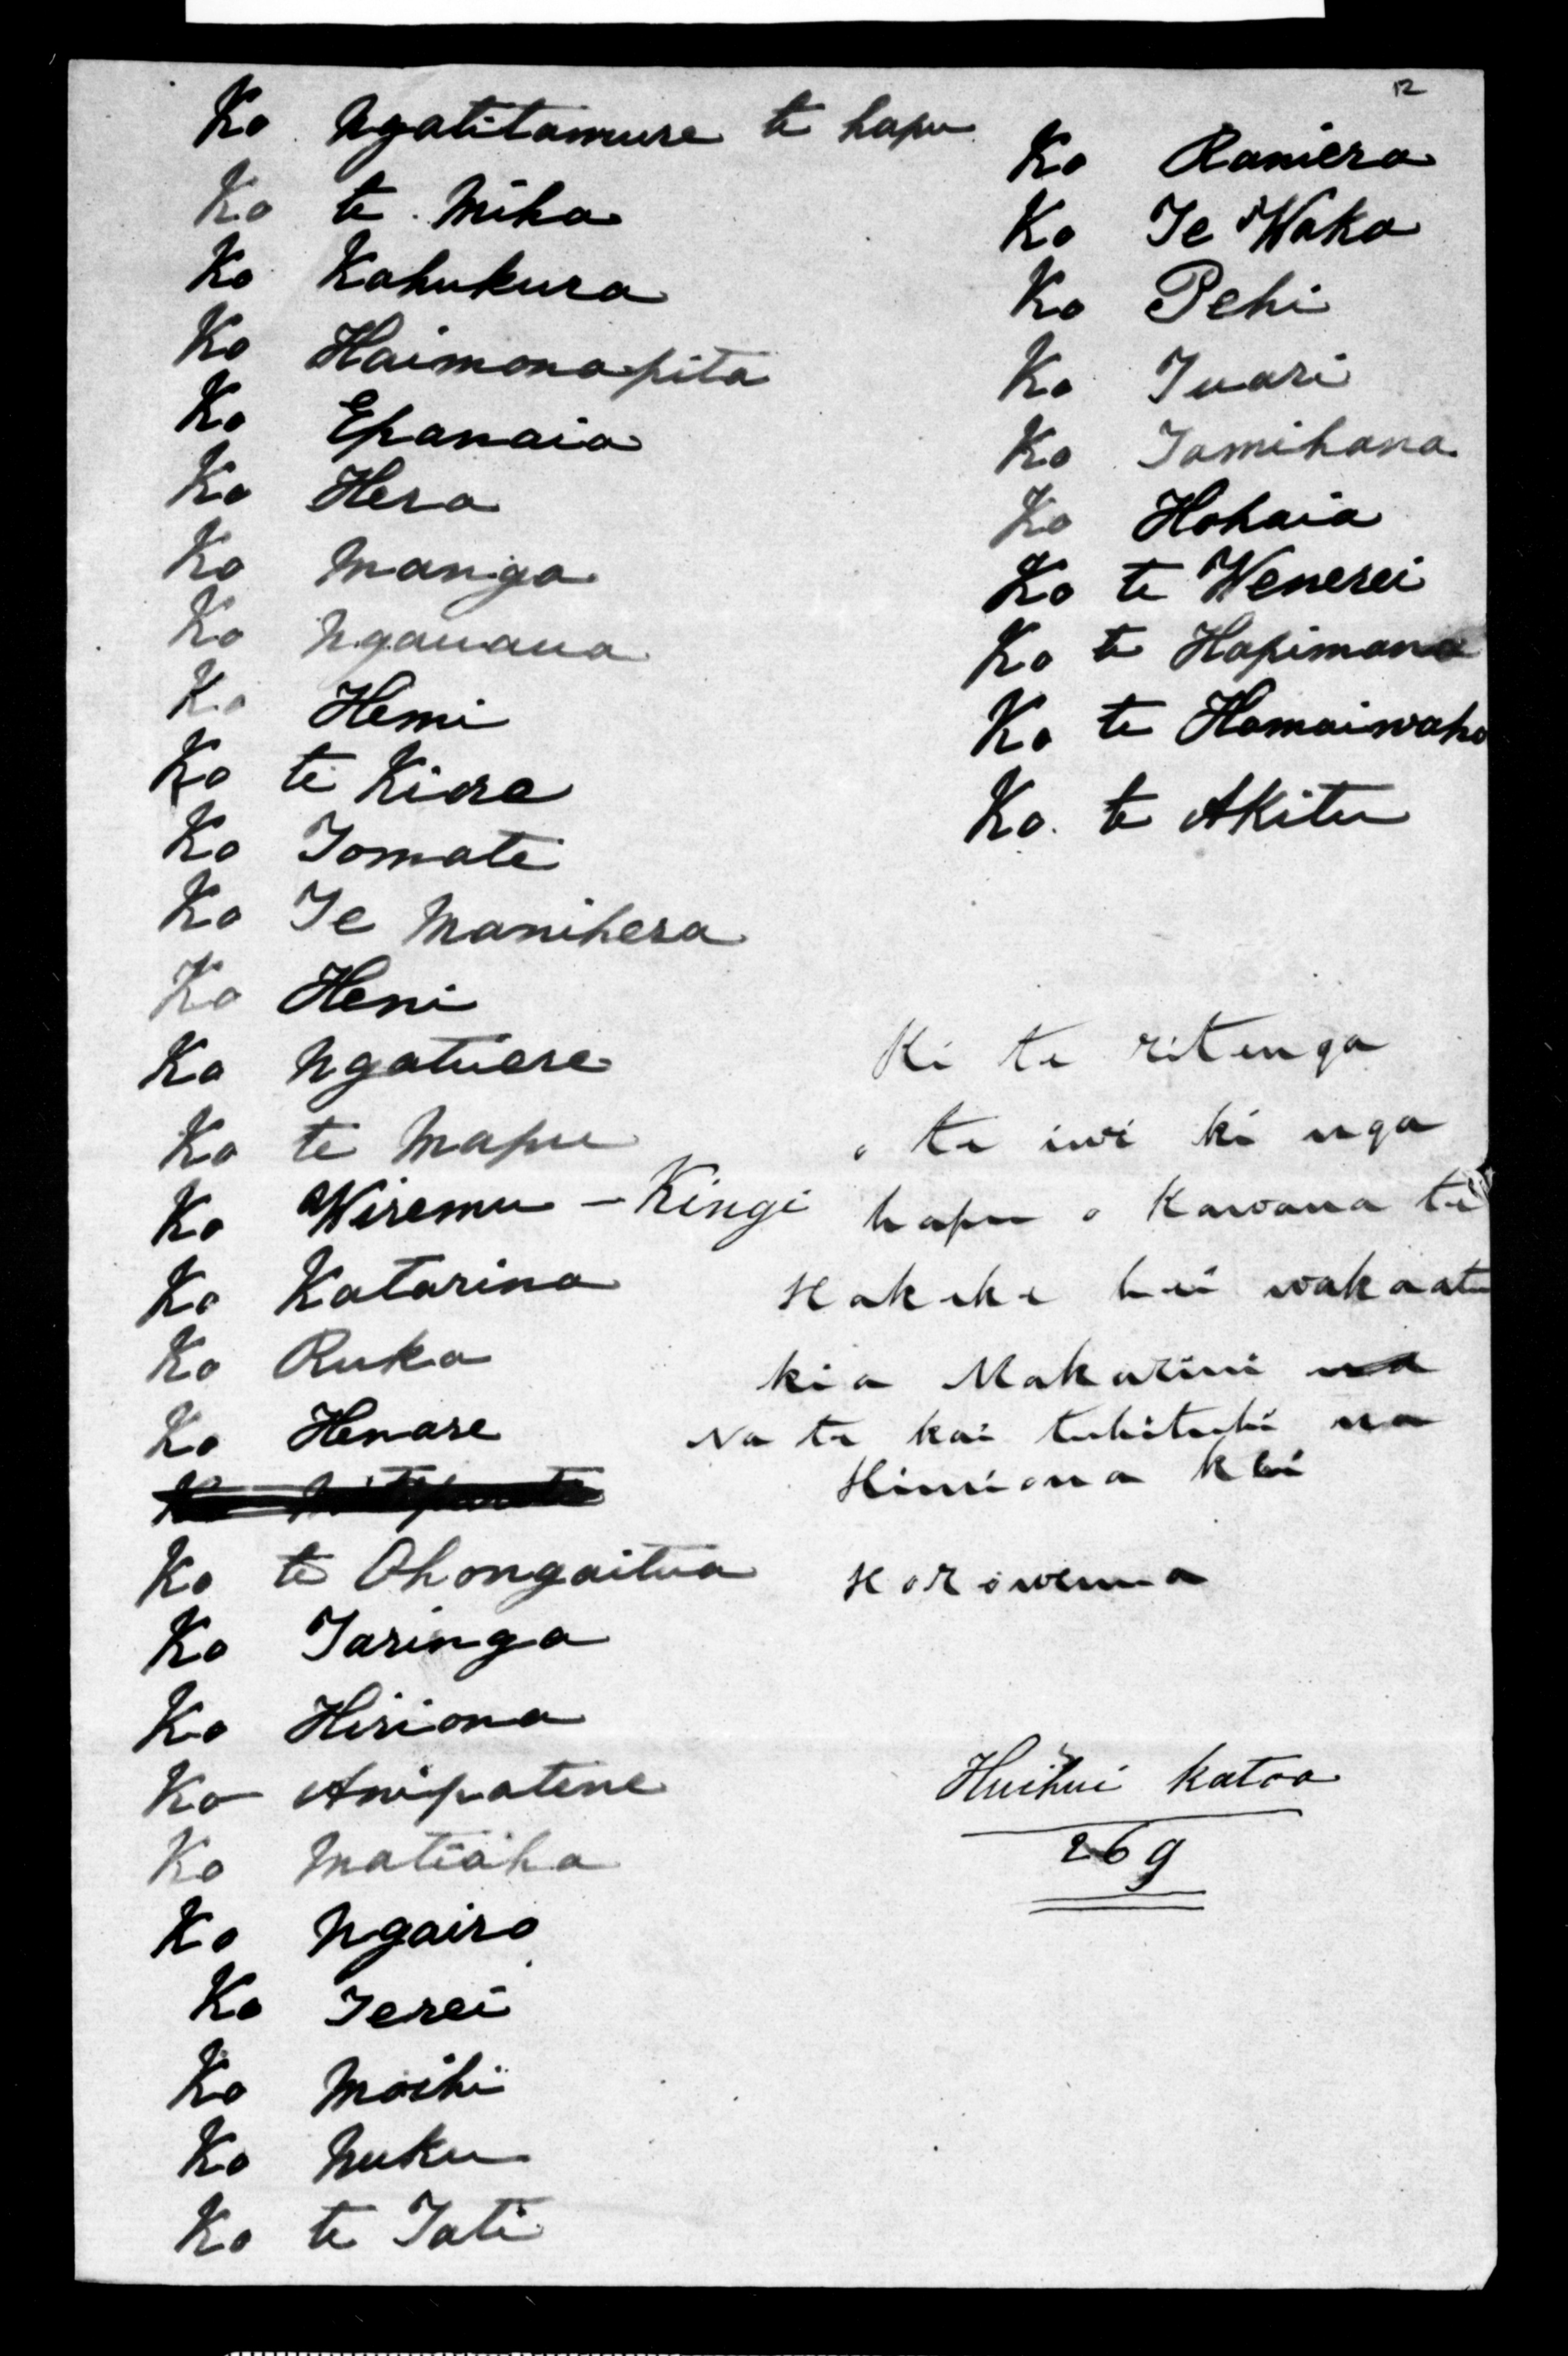 12
Ko Ngatitamure te hapu
Ko te Miha
Ko Kahukura
Ko Haimonapita
Ko Epanaia
Ko Hera
Ko Manga
Ko Ngauaua
Ko Hemi
Ko te Kiore
Ko Tomate
Ko Te Manihera
Ko Heni
Ko Ngatuere
Ko te Mapu
Ko Wiremu - Kingi
Ko Katarina
Ko Ruka
Ko Henare
Ko te Ohongaitua
Ko Taringa
Ko Hiriona
Ko Anipatene
Ko Matiaha
Ko Ngairo
Ko Terei
Ko Moihi
Ko Nuku
Ko te Tati
Ko Raniera
Ko Te Waka
Ko Pehi
Ko Tuari
Ko Tamihana
Ko Hohaia
Ko te Wenerei
Ko te Hapimana
Ko te Hamaiwaho
Ko te Akitu
Ki te ritenga
o te iwi ki nga
hapu o Kawana te
Hakeke hei wakaatu
kia Makarini na
Na te kai tuhituhi na
Himiona
Horowenua
Huihui katoa
269